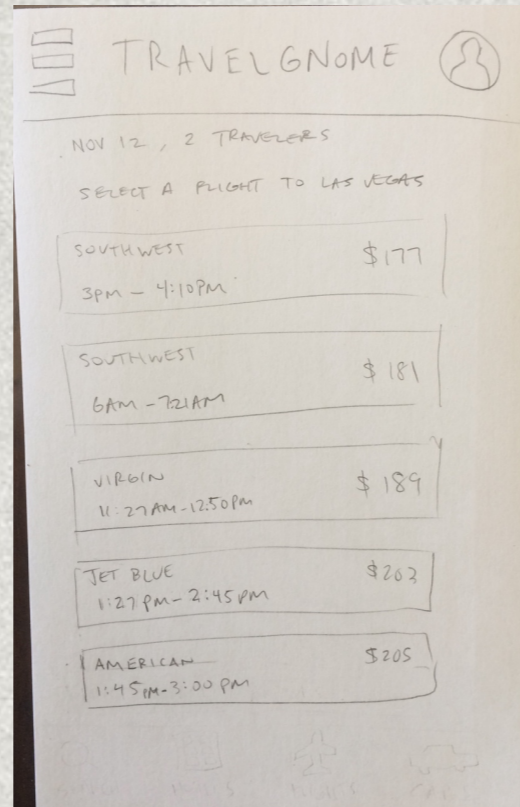 TRAVELGNOME
NOV 12, 2 TRAVELERS
SELECT A FLIGHT TO LAS VEGAS
SOUTHWEST
$177
3PM - 4:10PM
SOUTHWEST
$181
6AM - 7:21AM
VIRGIN
$189
11:27AM-12:50PM
JET BLUE
$203
1:27PM- 2:45PM
AMERICAN
$205
1:45PM-3:00PM